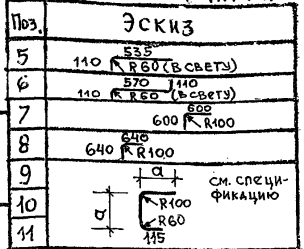 Поз. ЭСКИЗ
5 535 110 R60 (В СВЕТУ)
6 570 110 110 R60 (В СВЕТУ)
7 600 600 R100
8 640 640 R100
9 a СМ. СПЕЦИ-
10 a R100 ФИКАЦИЮ
R60
11 115